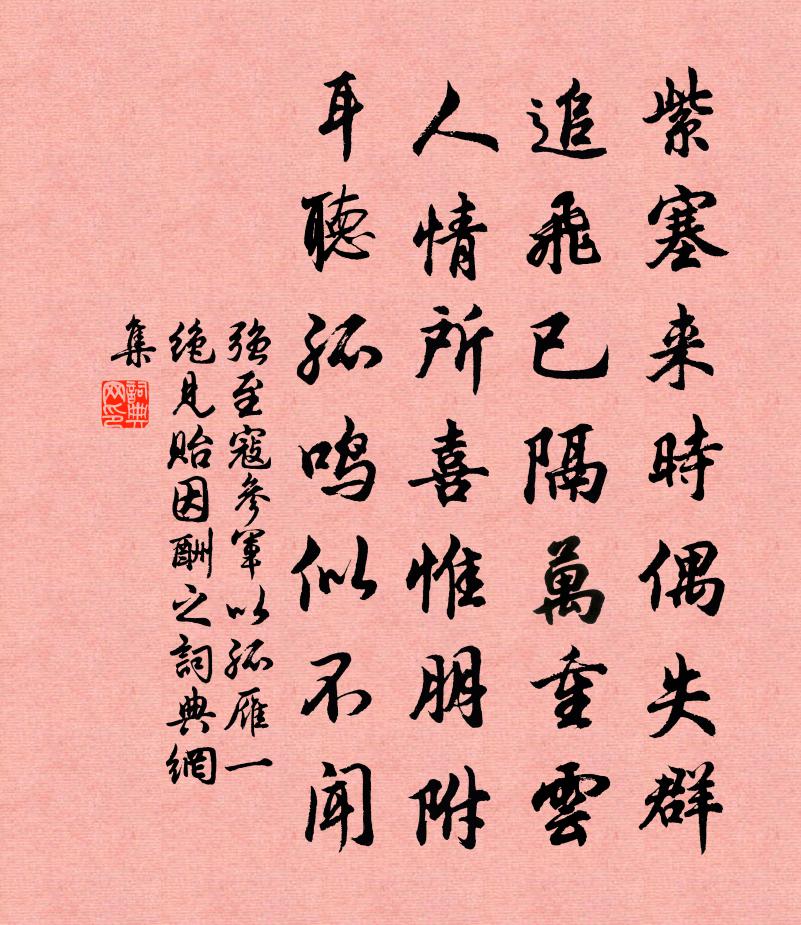 紫塞来時偶失群
追飛已隔萬重雲
人情所喜惟朋附
耳聽孤鳴似不闻
强至寇參軍以孤雁一
绝見貽因酬之詞典網
集
詞典
网印